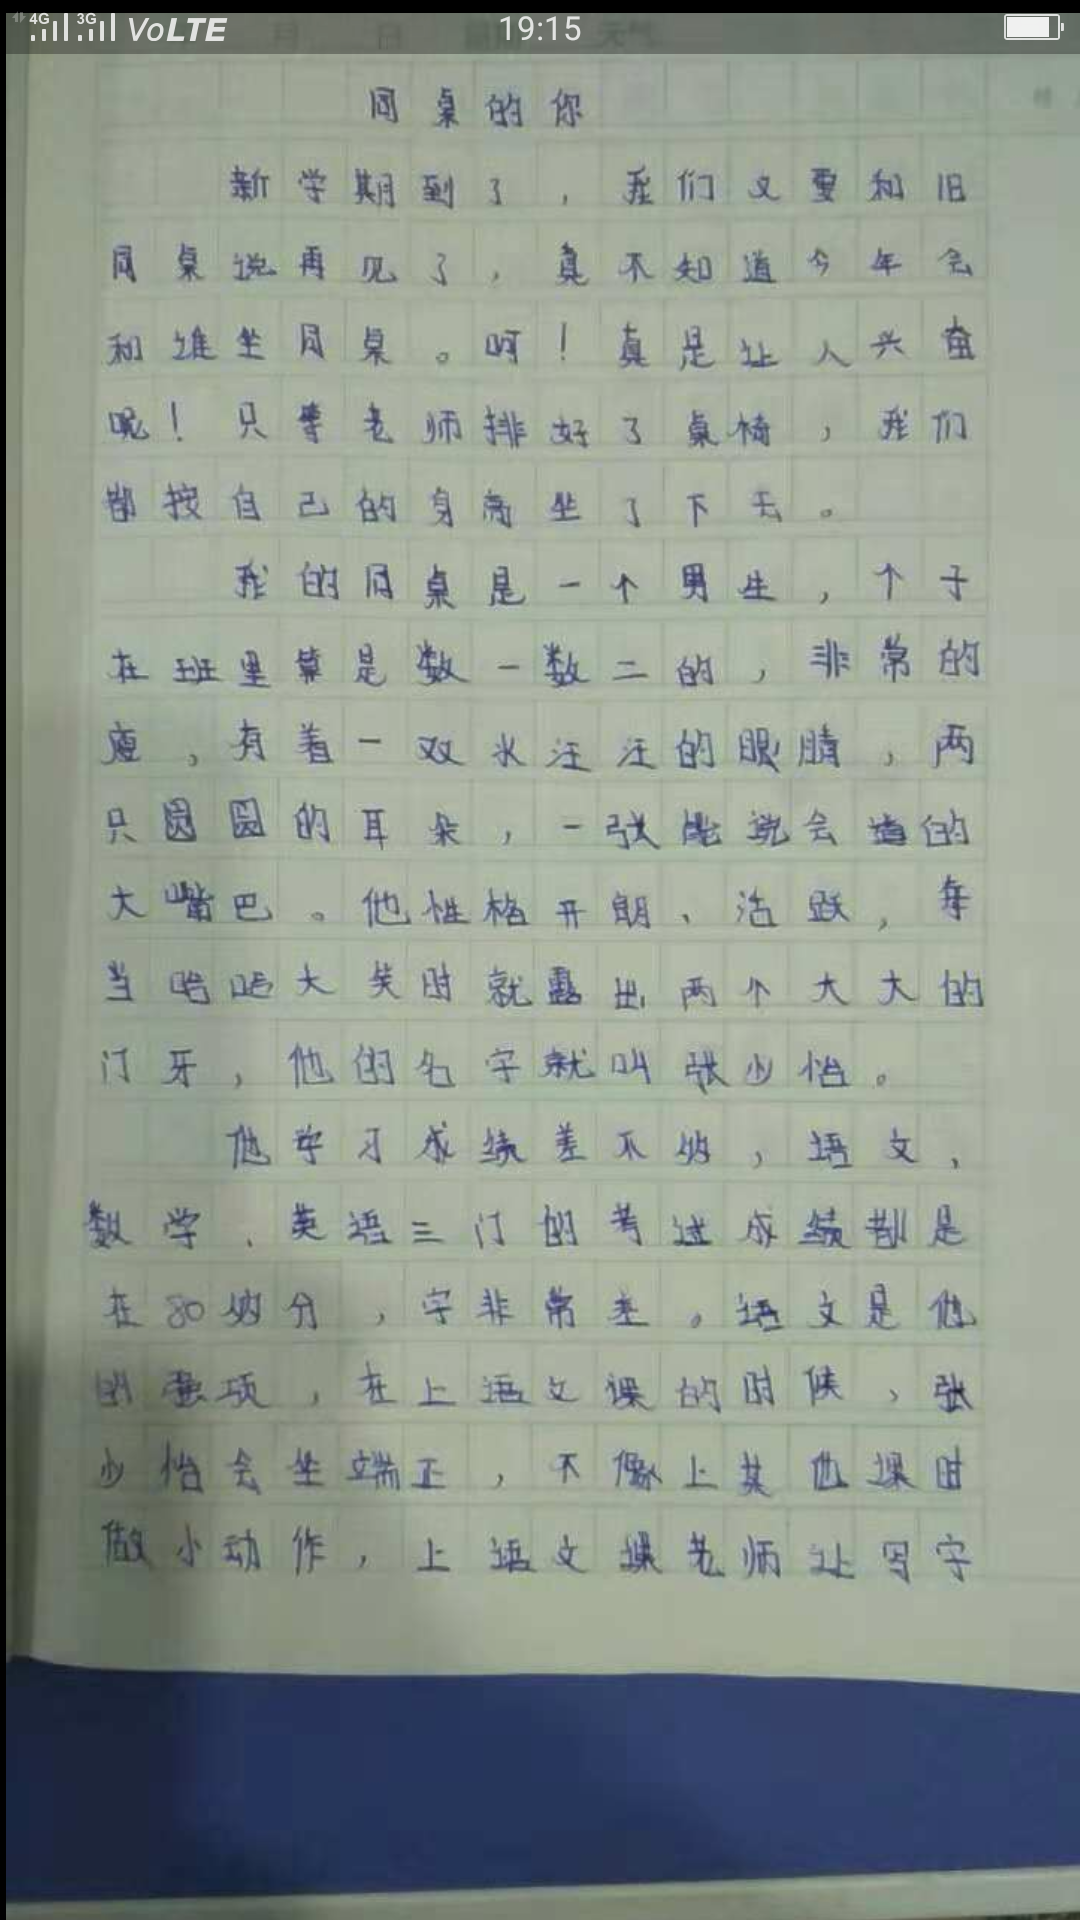 4G 3G VoLTE 19:15
同桌的你
新学期到了，我们又要和旧
同桌说再见了，真不知道今年会
和谁坐同桌。呵！真是让人兴奋
呢！只等老师排好了桌椅，我们
都按自己的身高坐了下去。
我的同桌是一个男生，个子
在班里算是数一数二的，非常的
瘦，有着一双水汪汪的眼睛，两
只圆圆的耳朵，一张能说会道的
大嘴巴。他性格开朗、活跃，每
当哈哈大笑时就露出两个大大的
门牙，他的名字就叫张少怡。
他学习成绩差不多，语文、
数学、英语三门的考试成绩都是
在80多分，字非常差。语文是他
的强项，在上语文课的时候，张
少怡会坐端正，不像上其他课时
做小动作，上语文课老师让写字